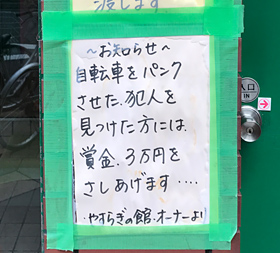 渡します
～お知らせ～
自転車をパンク
させた.犯人を
見つけた方には、
賞金.3万円を
さしあげます‥‥
・やすらぎの館・オーナーより
入口
IN